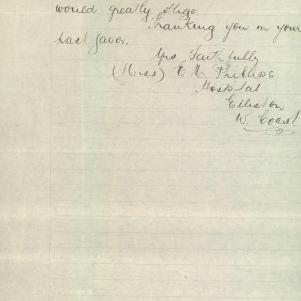 would greatly oblige.
Thanking you in your
past favor.
Yrs Faithfully
(Miss) E. M. Phillips
Hospital
Elliston
W. Coast